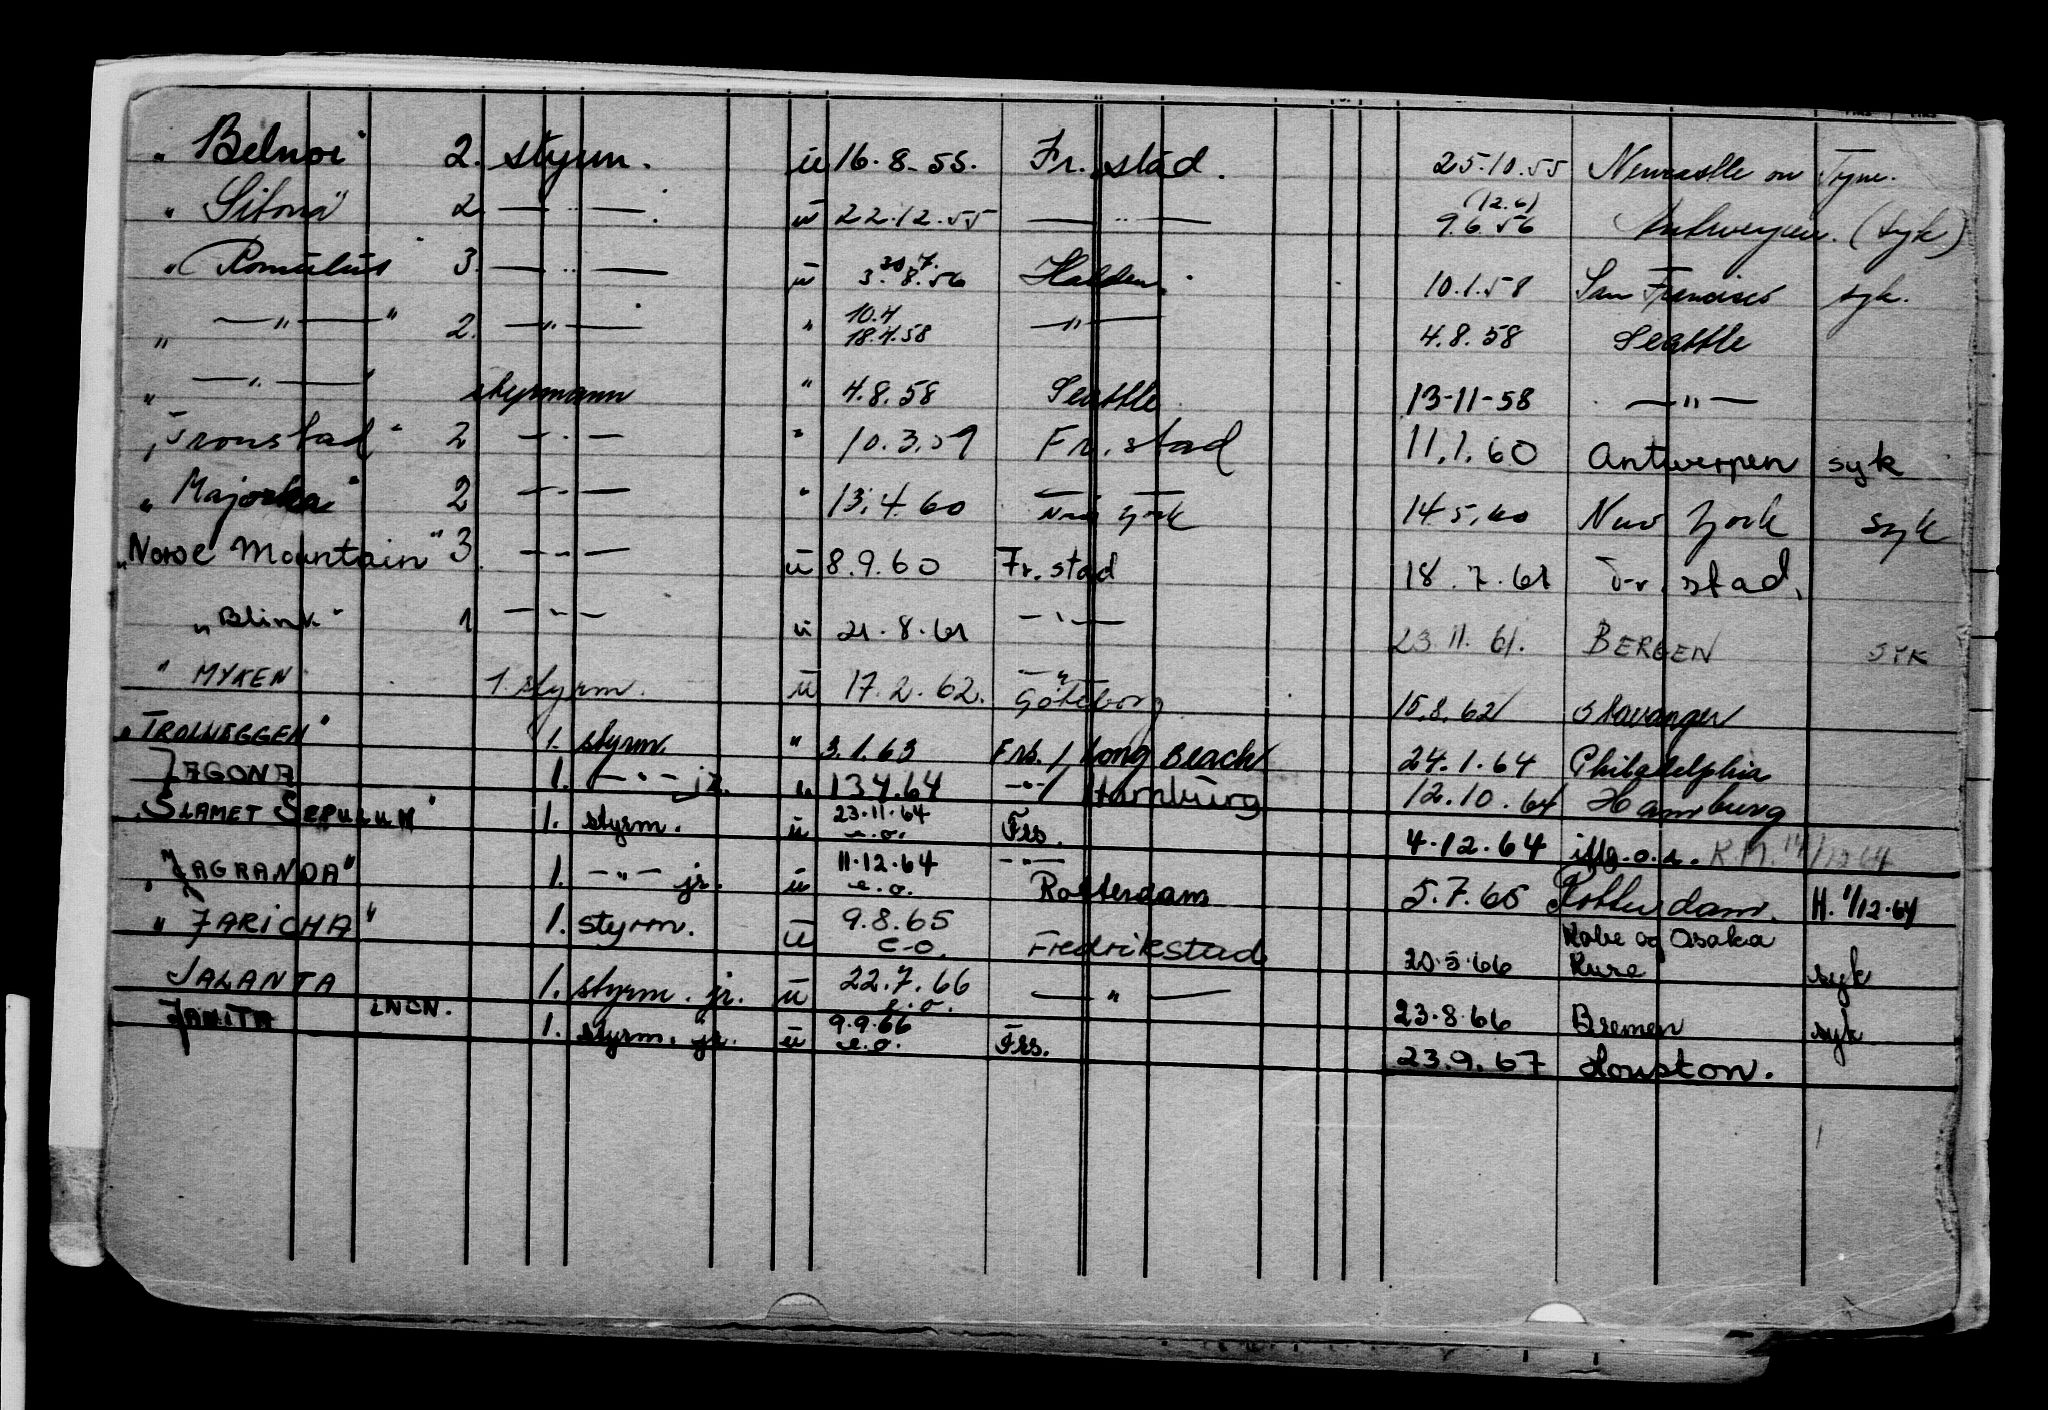 „ Belnor" 2. styrm. ü 16.8.55. Fr.stad. 25.10.55 Newcastle on Tyne.
„ Sitona" 2 — " —. ü 22.12.55 — " — (12.6) 9.6.56 Antwerpen. (syk)
„ Romulus" 3. — " — ü 30.7. 3.8.56 Halden. 10.1.58 San Francisco syk.
„ — " — " 2. — " — " 10.4 18.4.58 — " — 4.8.58 Seattle
„ — " — " styrmann " 4.8.58 Seattle 13-11-58 — " —
„Tronstad" 2 — " — " 10.3.59 Fr.stad 11.1.60 Antwerpen syk
„ Majorka" 2 — " — " 13.4.60 New York 14.5.60 New York syk
„Norse Mountain" 3 — " — ü 8.9.60 Fr.stad 18.7.61 Fr.stad.
„Blink" 1 — " — ü 21.8.61 — " — 23.11.61. BERGEN SYK
" MYKEN 1. styrm. ü 17.2.62. — " — Göteborg 15.8.62 Stavanger
„TROLLVEGGEN" 1. styrm. " 3.1.63 Frs. / Long Beach 24.1.64 Philadelphia
JAGONA 1. — " — jr. " 13.4.64 — " — / Hamburg 12.10.64 Hamburg
„SLAMET SEPULUH" 1. styrm. ü 23.11.64 e.o. Frs. 4.12.64 iflg. o.s. K.M. 14/12 64
„JAGRANDA" 1. — " — jr. ü 11.12.64 e.o. — " — Rotterdam 5.7.65 Rotterdam. H. 1/12.64
„ JARICHA" 1. styrm. ü 9.8.65 e.o. Fredrikstad 20.5.66 Kobe og Osaka Kure syk
JALANTA 1. styrm. jr. ü 22.7.66 e.o. — " — 23.8.66 Bremen syk
JANITA LNCN. 1. styrm. jr. ü 9.9.66 e.o. Frs. 23.9.67 Houston.